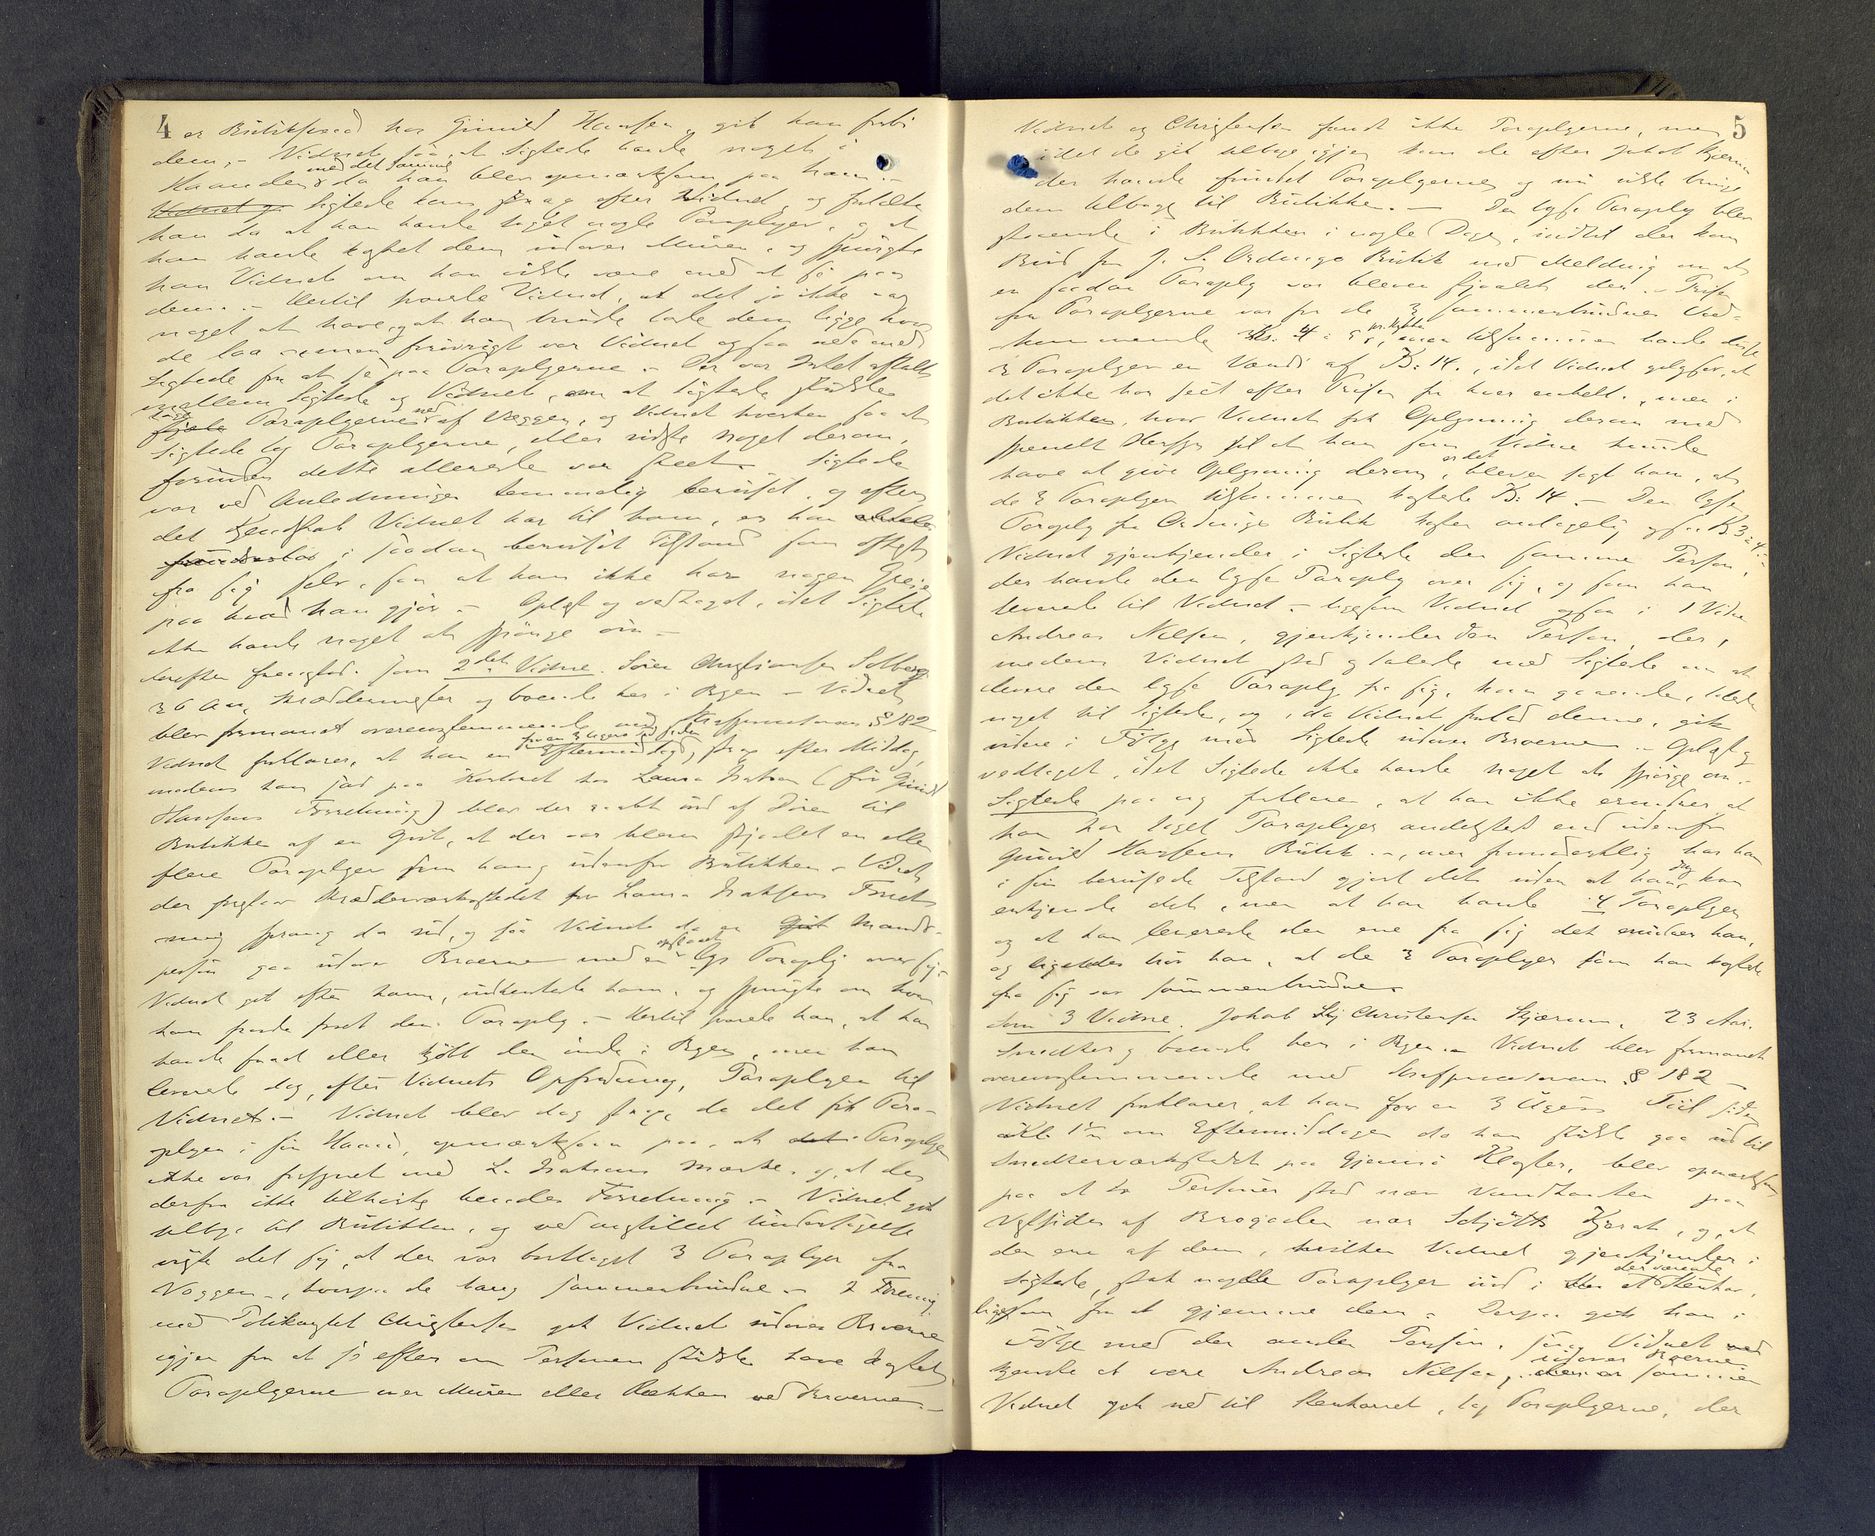 4
er Butiksvend hos Gunvald Hansen, gik han forbi
dem. – Vidnet saa at Sigtede havde noget i
med det samme
Haanden da han blev opmærksom paa ham. –
Sigtede kom strax efter Vidnet og fortalte
han da at han havde taget nogle Paraplyer, og at
han havde kastet dem udover Muren, og spurgte
han Vidnet om han vilde være med at se paa
dem. – Hertil svarte Vidnet, at det jo ikke var
noget at have, og at han burde lade dem ligge hvor
de laa – men forøvrigt var Vidnet ogsaa nede med
Sigtede for at se paa Paraplyerne. – Der var Intet aftalt
mellem Sigtede og Vidnet, om at Sigtede skulde
tage Paraplyerne ned af Væggen, og Vidnet hverken saa at
Sigtede tog Paraplyerne, eller vidste noget derom,
forinden dette allerede var skeet. – Sigtede
var ved Anledningen temmelig beruset, og efter
det Kjendskab Vidnet har til ham, er han
i saadan beruset Tilstand som oftest
fra sig selv, saa at han ikke har nogen Greie
paa hvad han gjør. – Oplæst og vedtaget, idet Sigtede
ikke havde noget at spørge om –
Derefter fremstod som 2det Vidne. Søren Christiansen Solberg
36 Aar, Skræddermester og boende her i Byen – Vidnet
blev formanet overensstemmende med Strafprocesloven § 182
for en 3 Uger siden
Vidnet forklarer, at han en Eftermiddag, strax efter Middag,
medens han sad paa Værkstedet hos Laura Isaksen (før Gunvald
Hansens Forretning) blev der raabt ind af Døren til
Butikken af en Gut, at der var bleven stjaalet en eller
flere Paraplyer som hang udenfor Butikken – Vidnet
der bestyrer Skrædderværkstedet for Laura Isaksens Forret-
ning sprang da ud, og saa Vidnet da en Mands-
opslaaet
person gaa udover Broerne med en lys Paraply over sig –
Vidnet gik efter ham, indhentede ham, og spurgte om hvor
han havde faaet den Paraply. – Hertil svarede han, at han
havde faaet eller kjøbt den inde i Byen, men han
leverede dog, efter Vidnets Opfordring, Paraplyen til
Vidnet. – Vidnet blev dog strax, da det fik Para-
plyen i sin Haand, opmærksom paa, at Paraplyen
ikke var forsynet med L. Isaksens Mærke, og at den
derfor ikke tilhørte hendes Forretning. – Vidnet gik
tilbage til Butikken, og ved anstillet Undersøgelse
viste det sig, at der var borttaget 3 Paraplyer fra
Væggen, hvorpaa de hang sammenbundne – I Forening
med Politibetjent Christensen gik Vidnet udover Broerne
igjen for at se efter om Personen skulde have kastet
Paraplyerne over Muren eller Rækken ved Broerne –
5
Vidnet og Christensen fandt ikke Paraplyerne, men
idet de gik tilbage igjen kom de efter Johat Kjærran
der havde fundet Paraplyerne og nu vilde bringe
dem tilbage til Butikken. – Den lyse Paraply blev
staaende i Butikken i nogle Dage, indtil der kom
Bud fra J. S. Ordings Butik med Melding om at
en saadan Paraply var bleven stjaalet der. – Prisen
for Paraplyerne var for de 3 sammenbundnes Ved-
kommende Kr. 4 a 5 pr. Stykke, men tilsammen havde disse
3 Paraplyer en Værdi af Kr. 14., idet Vidnet oplyser, at
det ikke har seet efter Prisen for hver enkelt, men i
Butikken, hvor Vidnet fik Oplysning derom med
specielt Hensyn til at han som Vidne kunde
er det
have at give Oplysning derom, bleven sagt ham, at
de 3 Paraplyer tilsammen kostede Kr. 14. – Den lyse
Paraply fra Ordings Butik koster antagelig ogsaa Kr 3 a 4. –
Vidnet gjenkjender i Sigtede den samme Person,
der havde den lyse Paraply over sig, og som han
leverede til Vidnet – ligesom Vidnet ogsaa i 1 Vidne
Andreas Nilsen, gjenkjender den Person, der,
medens Vidnet stod og talede med Sigtede om at
levere den lyse Paraply fra sig, kom gaaende, talede
noget til Sigtede, og, da Vidnet forlod denne, gik
videre i Følge med Sigtede udover Broerne. – Oplæst og
vedtaget, idet Sigtede ikke havde noget at spørge om. –
Sigtede paa ny forklarer, at han ikke erindrer at
han har taget Paraplyer andetsteds end udenfor
Gunvald Hansens Butik –, men formodentlig har han
i sin berusede Tilstand gjort det uden at han nu kan
erkjende det, men at han havde 4 Paraplyer
og at han leverede den ene fra sig det erindrer han,
og ligeledes tror han, at de 3 Paraplyer som han kastede
fra sig var sammenbundne
Som 3 Vidne. Johat Christensen Kjærran, 23 Aar.
Snedker, boende her i Byen. – Vidnet blev formanet
overensstemmende med Strafprocesloven § 182 –
Vidnet forklarer, at han for en 3 Ugers Tid siden
om Eftermiddagen da han skulde gaa ud til
Snedkerværkstedet paa Gjemsø Kloster, blev opmærksom
paa at to Personer stod nær Vandkanten paa
Vestsiden af Brogaden nær Schjøtts Kjerat, og, at
den ene af dem, hvilken Vidnet gjenkjender i
derværende
Sigtede, stak nogle Paraplyer ind i et Stenkar,
ligesom for at gjemme dem – Derpaa gik han i
Følge med den anden Person, som Vidnet
udover Broerne.
kjendte at være Andreas Nilsen,
Vidnet gik ned til Stenkarret, tog Paraplyerne, der